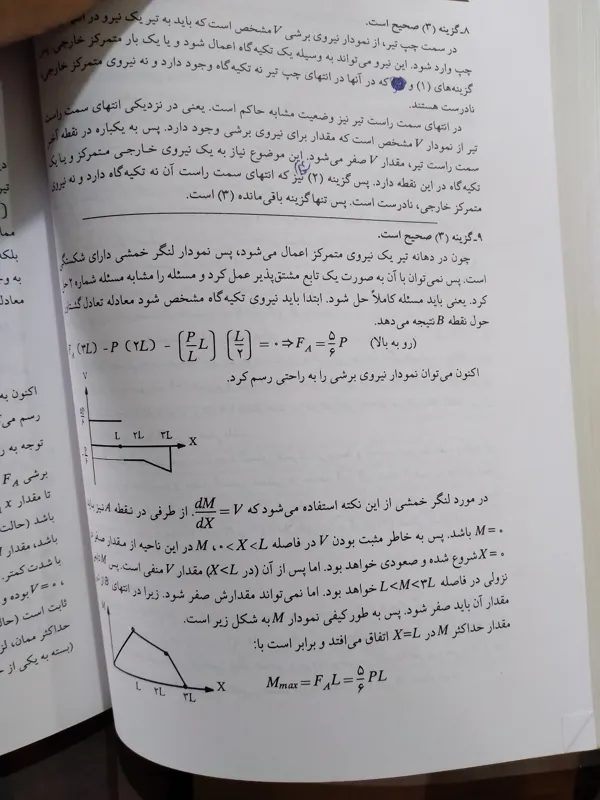 ۸-گزینه (۳) صحیح است.
در سمت چپ تیر، از نمودار نیروی برشی V مشخص است که باید به تیر یک نیرو در
چپ وارد شود. این نیرو می‌تواند به وسیله یک تکیه‌گاه اعمال شود و یا یک بار متمرکز خارجی. پس
گزینه‌های (۱) و که در آنها در انتهای چپ تیر نه تکیه‌گاه وجود دارد و نه نیروی متمرکز خارجی،
نادرست هستند.
در انتهای سمت راست تیر نیز وضعیت مشابه حاکم است. یعنی در نزدیکی انتهای سمت راست
تیر از نمودار V مشخص است که مقدار برای نیروی برشی وجود دارد. پس به یکباره در نقطه آخر
سمت راست تیر، مقدار V صفر می‌شود. این موضوع نیاز به یک نیروی خارجی متمرکز و یا یک
تکیه‌گاه در این نقطه دارد. پس گزینه (۲) نیز که انتهای سمت راست آن نه تکیه‌گاه دارد و نه نیروی
متمرکز خارجی، نادرست است. پس تنها گزینه باقی‌مانده (۳) است.
۹-گزینه (۳) صحیح است.
چون در دهانه تیر یک نیروی متمرکز اعمال می‌شود، پس نمودار لنگر خمشی دارای شکستگی
است. پس نمی‌توان با آن به صورت یک تابع مشتق‌پذیر عمل کرد و مسئله را مشابه مسئله شماره ۲ حل
کرد. یعنی باید مسئله کاملاً حل شود. ابتدا باید نیروی تکیه‌گاه مشخص شود معادله تعادل گشتاور
حول نقطه B نتیجه می‌دهد.
F_A (۳L) - P (۲L) - (P/L L) (L/۲) = ۰ ⇒ F_A = ۵/۶ P (رو به بالا)
اکنون می‌توان نمودار نیروی برشی را به راحتی رسم کرد.
V
L ۲L ۳L X
در مورد لنگر خمشی از این نکته استفاده می‌شود که dM/dX = V. از طرفی در نقطه A نیز باید
M = ۰ باشد. پس به خاطر مثبت بودن V در فاصله ۰ < X < L، M در این ناحیه از مقدار صفر در
X = ۰ شروع شده و صعودی خواهد بود. اما پس از آن (در L < X) مقدار V منفی است. پس M تابع
نزولی در فاصله L < M < ۳L خواهد بود. اما نمی‌تواند مقدارش صفر شود. زیرا در انتهای B
مقدار آن باید صفر شود. پس به طور کیفی نمودار M به شکل زیر است.
مقدار حداکثر M در X=L اتفاق می‌افتد و برابر است با:
M
L ۲L ۳L X
M_max = F_A L = ۵/۶ PL
تیر
بلکه
به وجو
معادل
اکنون به
رسم می‌ک
توجه به ر
برشی F_A
تا مقدار x
باشد (حالت
باشد، مقدار
با شدت کمتر.
V = ۰ بوده و
ثابت است (حال
حداکثر ممان، لز
(بسته به یکی از ح